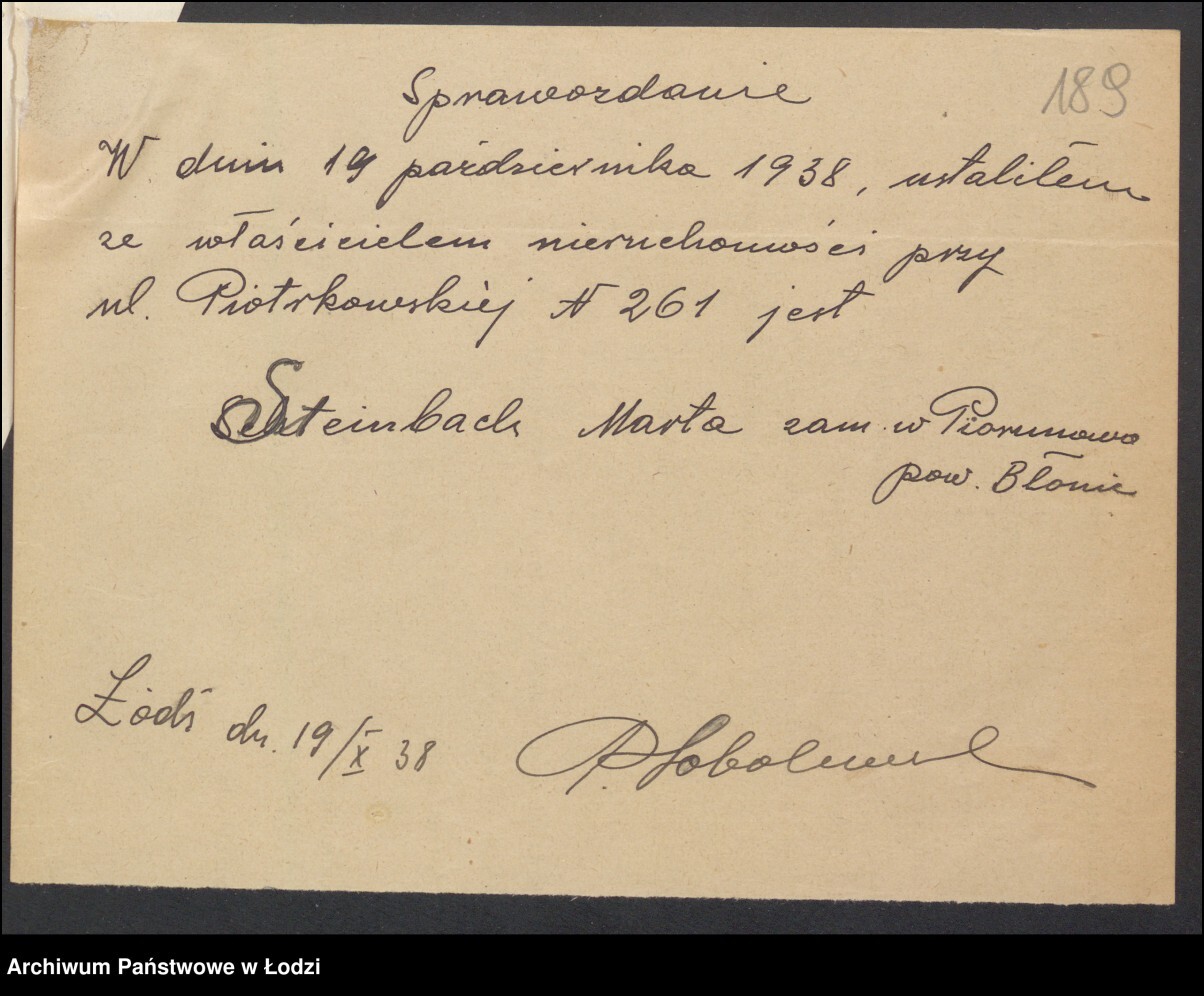 189
Sprawozdanie
W dniu 19 października 1938, ustaliłem
ze właścicielem nieruchomości przy
ul. Piotrkowskiej N 261 jest
Steinbach Marta zam. w Piorunowo
pow. Błonie
Łódź dn. 19/X 38
Archiwum Państwowe w Łodzi